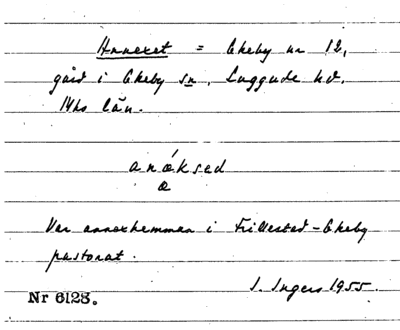 Annexet = Ekeby nr 12,
gård i Ekeby sn, Luggude hd,
Mhs län.
anǽksed
a
Var annexhemman i Frillestad-Ekeby
pastorat.
I. Ingers 1955.
Nr 6123.